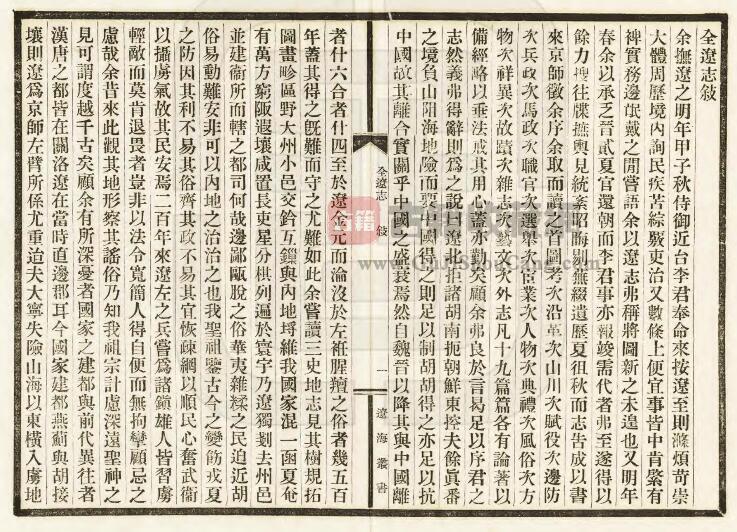 全遼志敍
余撫遼之明年甲子秋侍御近台李君奉命來按遼至則滌煩苛崇
大體周歷境内詢民疾苦綜覈吏治又數條上便宜事皆中肯綮有
裨實務邊氓戴之閒嘗語余以遼志弗稱將圖新之未遑也又明年
春余以承乏晉貳夏官還朝而李君事亦報竣需代者弗至遂得以
餘力搜往牒摭輿見統紊昭晦剔蕪綴遺歷夏徂秋而志告成以書
來京師徵余序余取而讀之首圖考次沿革次山川次賦役次邊防
次兵政次馬政次職官次選舉次宦業次人物次典禮次風俗次方
物次祥異次故蹟次雜志次藝文次外志凡十九篇篇各有論著以
備經略以垂法戒其用心蓋亦勤矣顧余弗良於言曷足以序君之
志然義弗得辭則爲之說曰遼北拒諸胡南扼朝鮮東控夫餘眞番
之境負山阻海地險而要中國得之則足以制胡胡得之亦足以抗
中國故其離合實關乎中國之盛衰焉然自魏晉以降其與中國離
全遼志 敍 一 遼海叢書
者什六合者什四至於遼金元而淪沒於左袵腥羶之俗者幾五百
年蓋其得之旣難而守之尤難如此余嘗讀三史地志見其樹規拓
圖畫畛區野大州小邑交錯互鎭與内地埒維我國家混一函夏奄
有萬方窮陬遐壤咸置長吏星分棋列遍於寰宇乃遼獨剗去州邑
並建衞所而轄之都司何哉邊鄙甌脫之俗華夷雜糅之民迫近胡
俗易動難安非可以内地之治治之也我聖祖鑒古今之變飭戎夏
之防因其利不易其俗齊其政不易其宜恢疎網以順民心奮武衞
以攝虜氣故其民安焉二百年來遼左之兵嘗爲諸鎭雄人皆習虜
輕敵而莫肯退畏者豈非以法令寬簡人得自便而無拘攣顧忌之
慮哉余昔來此觀其地形察其謠俗乃知我祖宗計慮深遠聖神之
見可謂度越千古矣顧余有所深憂者國家之建都與前代異往者
漢唐之都皆在關洛遼在當時直邊郡耳今國家建都燕薊與胡接
壤則遼爲京師左臂所係尤重迨夫大寧失險山海以東橫入虜地